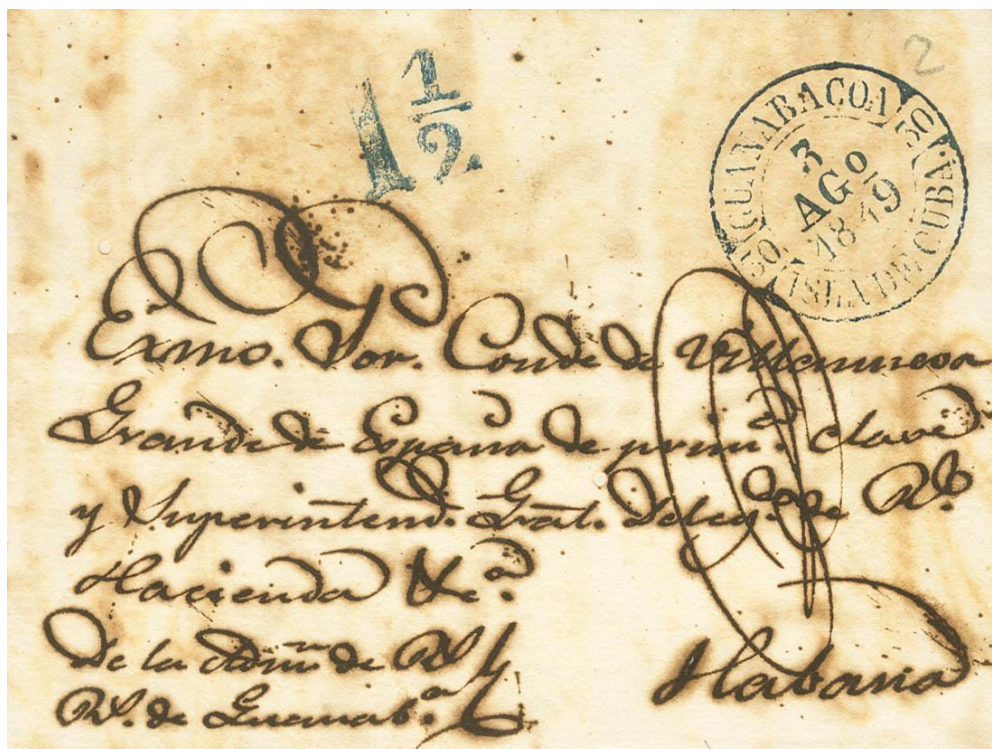 2
1 1/2
GUANABACOA
3
AGO
1849
ISLA DE CUBA
Exmo. Sor. Conde de Villanueva
Grande de España de prim.ª clase
y Superintend. Gral. Deleg.º de Rl.
Hacienda &c.ª
De la Admn de Rl
Rs. de Guanab.ª
Habana